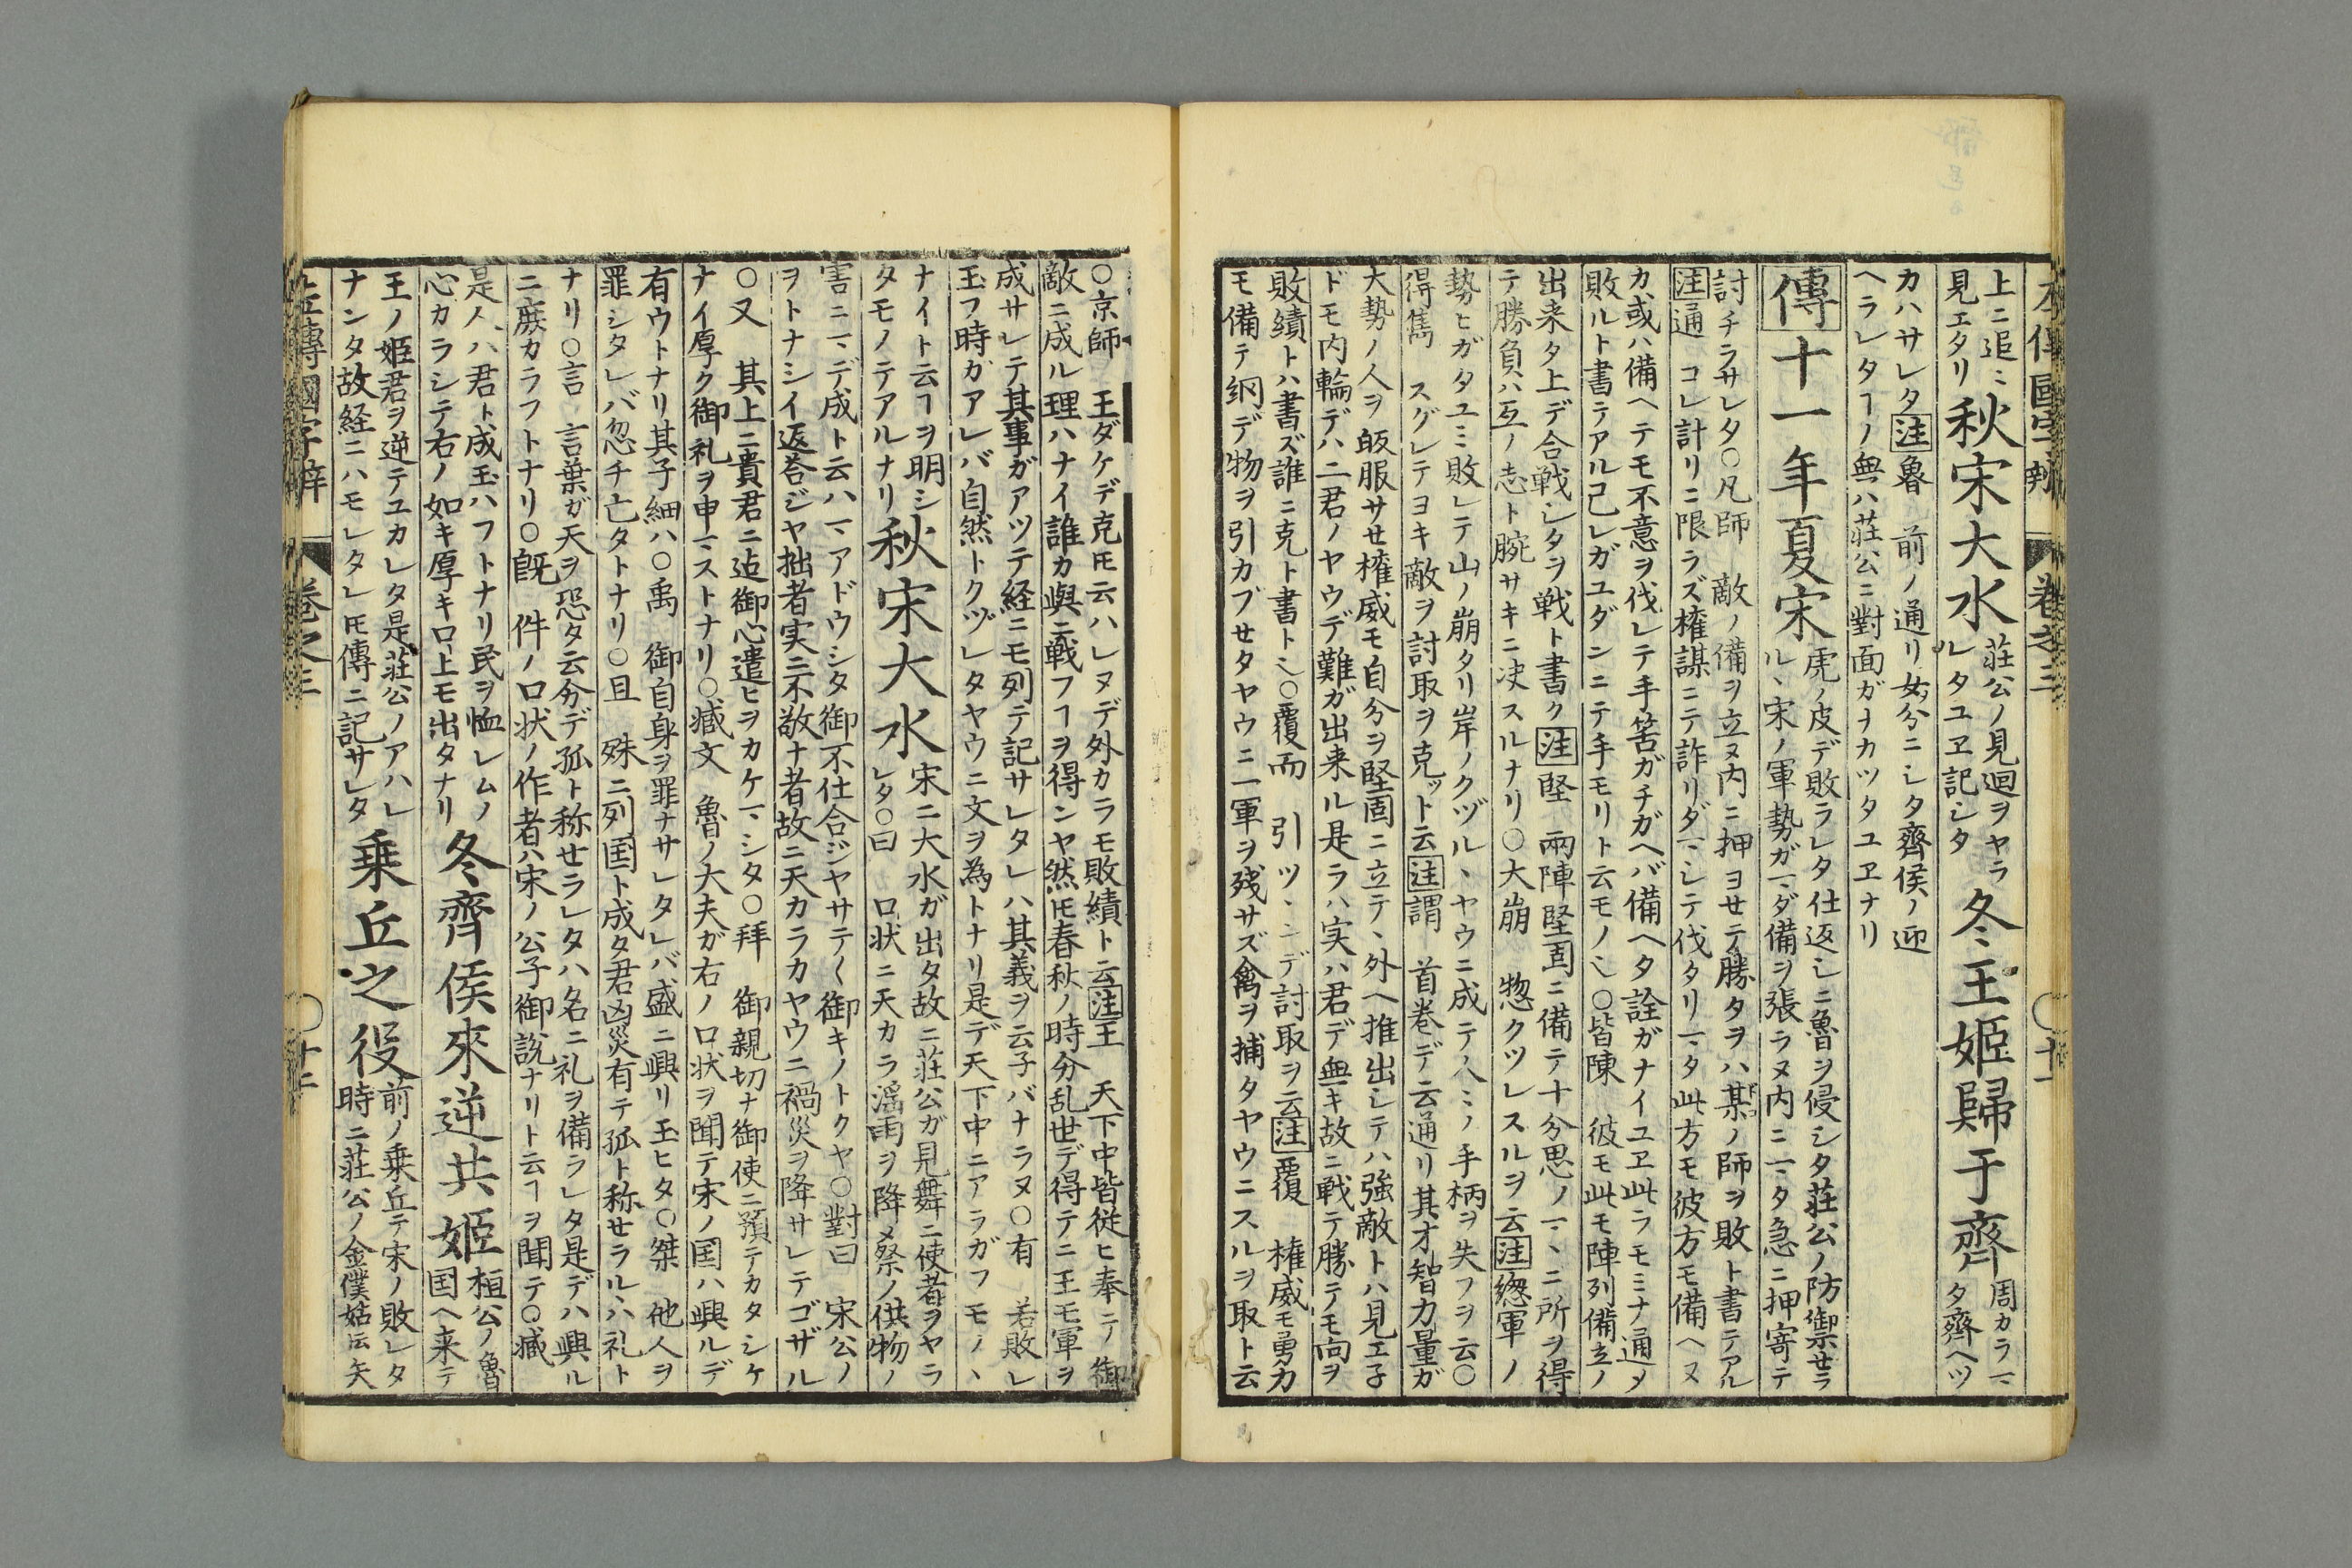 上ニ追ミ
見エタリ
秋宋大水
荘公ノ見迴ヲヤラ
ルタユヱ記シタ
冬王姫歸于齊
周カラマ
タ齊ヘツ
カハサレタ注魯　前ノ通リ女分ニシタ齊侯ノ迎
ヘラレタヿノ無ハ荘公ニ對面ガナカツタユヱナリ
傳十一年夏宋
虎ノ皮デ敗ラレタ仕返シニ魯ヲ侵シタ荘公ノ防禦せラ
ルヽ宋ノ軍勢ガマダ備ヲ張ラヌ内ニマタ急ニ押寄テ
討チラサレタ○凡師　敵ノ備ヲ立ヌ内ニ押ヨせテ勝タヲハ某ノ師ヲ敗ト書テアル
注通　コレ計リニ限ラズ権謀ニテ詐リダマシテ伐タリマタ此方モ彼方モ備ヘヌ
カ或ハ備ヘテモ不意ヲ伐レテ手筈ガチガヘバ備ヘタ詮ガナイユヱ此ラモミナ通メ
敗ルト書テアル己レガユダンニテ手モリト云モノ也○皆陳　彼モ此モ陣列備立ノ
出来タ上デ合戦シタヲ戦ト書ク注堅　兩陣堅固ニ備テ十分思ノマヽニ所ヲ得
テ勝負ハ互ノ志ト腕サキニ决スルナリ○大崩　惣クツレスルヲ云注緫軍ノ
勢ヒガタユミ敗レテ山ノ崩タリ岸ノクヅルヽヤウニ成テ人ミノ手柄ヲ失フヲ云○
得雋　スグレテヨキ敵ヲ討取ヲ克ツト云注謂　首巻デ云通リ其才智力量ガ
大勢ノ人ヲ皈服サせ権威モ自分ヲ堅固ニ立テヽ外ヘ推出シテハ強敵トハ見エ子
ドモ内輪デハ二君ノヤウデ難ガ出来ル是ラハ実ハ君デ無キ故ニ戦テ勝テモ向ヲ
敗績トハ書ズ誰ニ克ト書ト也○覆而　引ツヽンデ討取ヲ云注覆　権威モ勇力
モ備テ網デ物ヲ引カブせタヤウニ一軍ヲ残サズ禽ヲ捕タヤウニスルヲ取ト云
○京師　王ダケデ克トモ云ハレヌデ外カラモ敗績ト云注王　天下中皆従ヒ奉テ御
敵ニ成ル理ハナイ誰カ與ニ戦フヿヲ得ンヤ然トモ春秋ノ時分乱世デ得テニ王モ軍ヲ
成サレテ其事ガアツテ経ニモ列テ記サレタレハ其義ヲ云子バナラヌ○有　若敗レ
玉フ時ガアレバ自然トクヅレタヤウニ文ヲ為トナリ是デ天下中ニアラガフモノヽ
ナイト云ヿヲ明シ
タモノテアルナリ
秋宋大水
宋ニ大水ガ出タ故ニ荘公ガ見舞ニ使者ヲヤラ
レタ○曰　口状ニ天カラ滛雨ヲ降メ祭ノ供物ノ
害ニマデ成ト云ハマアドウシタ御不仕合ジヤサテ〱御キノトクヤ○對曰　宋公ノ
ヲトナシイ返荅ジヤ拙者実ニ不敬ナ者故ニ天カラカヤウニ禍災ヲ降サレテゴザル
○又　其上ニ貴君ニ迠御心遣ヒヲカケマシタ○拜　御親切ナ御使ニ預テカタシケ
ナイ厚ク御礼ヲ申マストナリ○臧文　魯ノ大夫ガ右ノ口状ヲ聞テ宋ノ国ハ興ルデ
有ウトナリ其子細ハ○禹　御自身ヲ罪ナサレタレバ盛ニ興リ玉ヒタ○桀　他人ヲ
罪シタレバ忽チ亡タトナリ○且　殊ニ列国ト成タ君凶災有テ孤ト称せラルヽハ礼ト
ナリ○言　言葉ガ天ヲ恐タ云分デ孤ト称せラレタハ名ニ礼ヲ備ラレタ是デハ興ル
ニ庶カラフトナリ○既　件ノ口状ノ作者ハ宋ノ公子御説ナリト云ヿヲ聞テ○臧
是人ハ君ト成玉ハフトナリ民ヲ恤レムノ
心カラシテ右ノ如キ厚キ口上モ出タナリ
冬齊侯來逆共姫
桓公ノ魯
国ヘ来テ
王ノ姫君ヲ逆テユカレタ是荘公ノアハレ
ナンタ故経ニハモレタレトモ傳ニ記サレタ
乗丘之役
前ノ乗丘テ宋ノ敗レタ
時ニ荘公ノ金僕姑ト云矢
左傳國字辯　巻之三　○十二